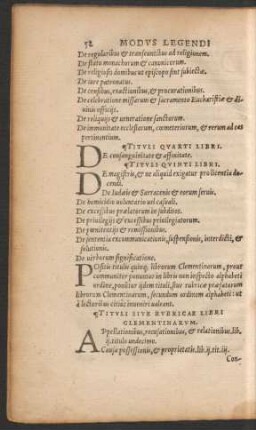 52 MODVS LEGENDI
De regularibus & transeuntibus ad religionem.
De statu monachorum & canonicorum.
De religiosis domibus ut episcopo sint subiectæ.
De iure patronatus.
De censibus, exactionibus, & procurationibus.
De celebratione missarum & sacramento Eucharistiæ & di-
uinis officijs.
De reliquijs & ueneratione sanctorum.
De immunitate ecclesiarum, coemeteriorum, & rerum ad eas
pertinentium.
¶TITVLI QVARTI LIBRI.
DE consanguinitate & affinitate.
¶TITVLI QVINTI LIBRI.
DE magistris, & ne aliquid exigatur pro licentia do-
cendi.
De Iudæis & Sarracenis & eorum seruis.
De homicidio uoluntario uel casuali.
De excessibus prælatorum in subditos.
De priuilegijs & excessibus priuilegiatorum.
De pœnitentijs & remissionibus.
De sententia excommunicationis, suspensionis, interdicti, &
solutionis.
De uerborum significatione.
POstrò titulos quinq; librorum Clementinarum, prout
communiter ponuntur in libris non inspecto alphabeti
ordine, posuimus ijdem tituli, siue rubricæ præfatorum
librorum Clementinarum, secundum ordinem alphabeti: ut
à lectoribus citius inueniri ualeant.
¶TITVLI SIVE RVBRICAE LIBRI
CLEMENTINARVM.
APpellationibus, recusationibus, & relationibus, lib.
ij. titulo duodecimo.
Causa possessionis, & proprietatis. lib. ij. tit. iij.
Con-